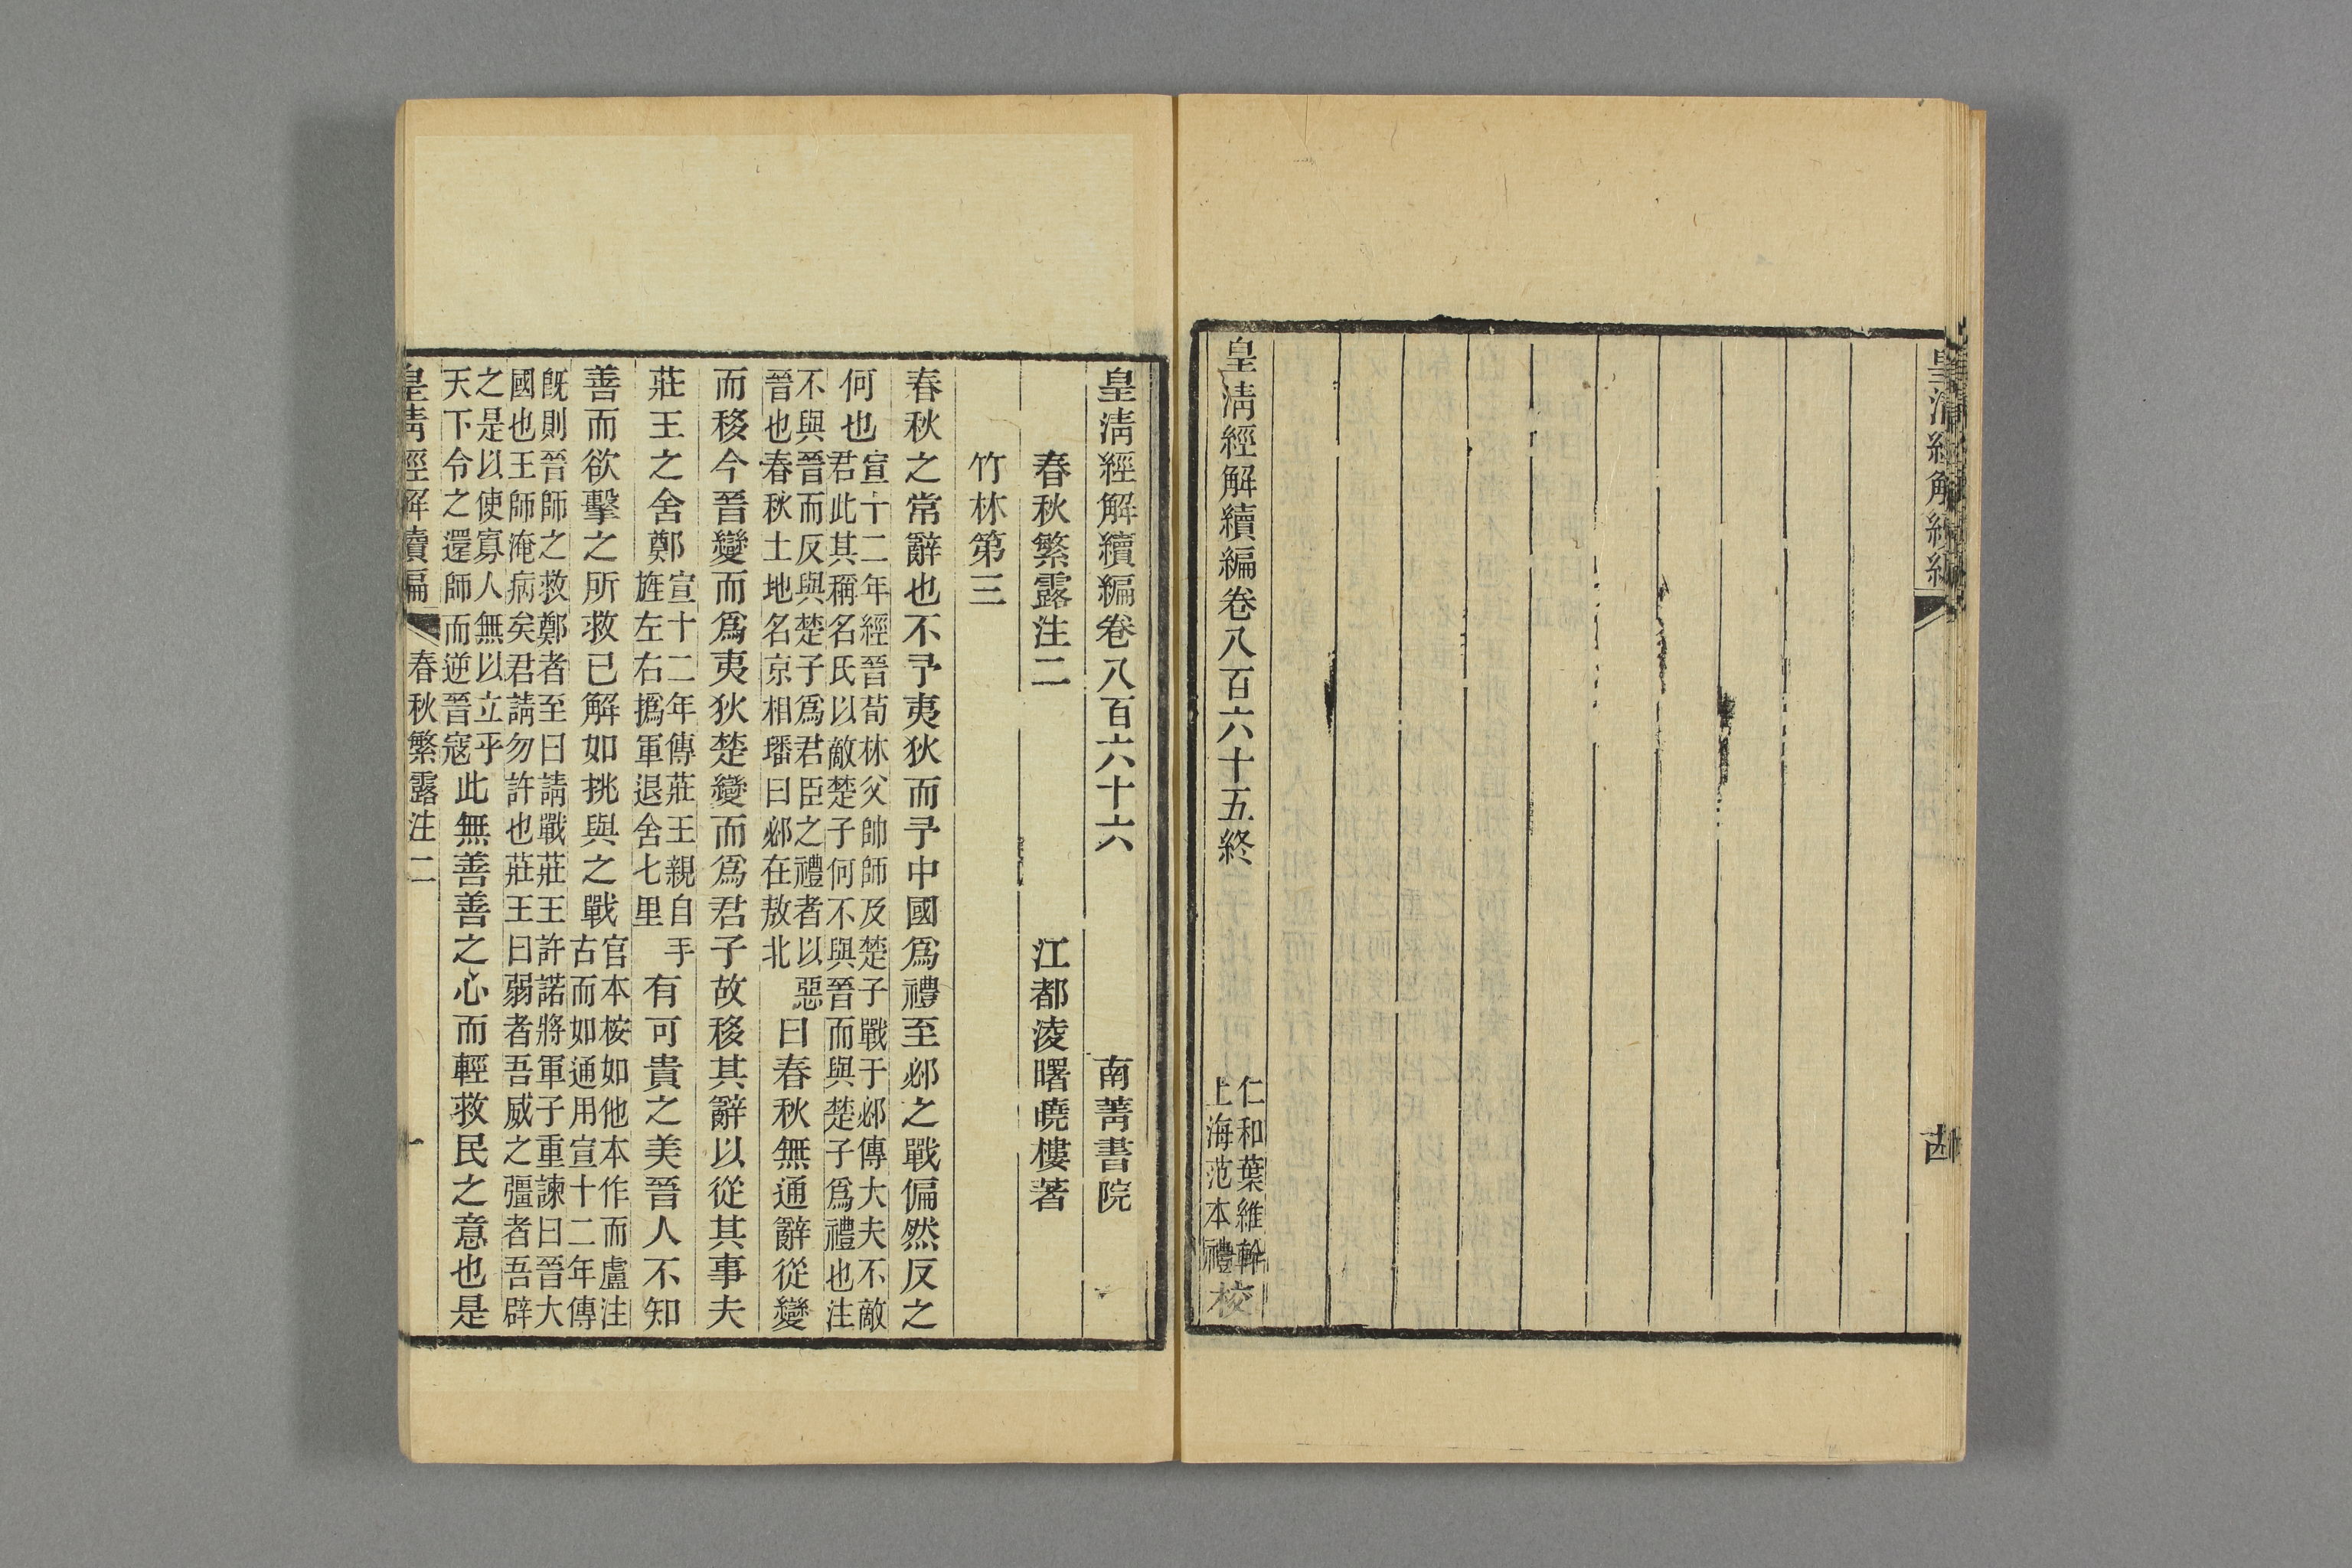 皇清經解續編
皇清經解續編卷八百六十五終 仁和葉維幹上海范本禮校
皇清經解續編卷八百六十六 南菁書院
春秋繁露注二 江都淩曙曉樓著
竹林第三
春秋之常辭也不予夷狄而予中國爲禮至邲之戰偏然反之
何也宣十二年經晉荀林父帥師及楚子戰于邲傳大夫不敵君此其稱名氏以敵楚子何不與晉而與楚子爲禮也注
不與晉而反與楚子爲君臣之禮者以惡晉也春秋土地名京相璠曰邲在敖北曰春秋無通辭從變
而移今晉變而爲夷狄楚變而爲君子故移其辭以從其事夫
莊王之舍鄭宣十二年傳莊王親自手旌左右撝軍退舍七里有可貴之美晉人不知
善而欲擊之所救已解如挑與之戰官本桉如他本作而盧注古而如通用宣十二年傳
既則晉師之救鄭者至曰請戰莊王許諾將軍子重諫曰晉大國也王師淹病矣君請勿許也莊王曰弱者吾威之彊者吾辟
之是以使寡人無以立乎天下令之還師而逆晉寇此無善善之心而輕救民之意也是
皇清經解續編 春秋繁露注二 一